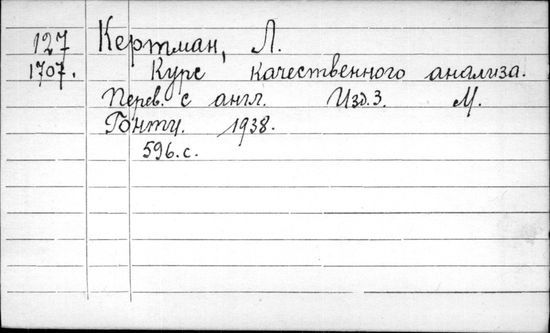 127 Кертман, Л.
1707. Курс качественного анализа.
Перев. с англ. Изд. 3. М.
Гонту. 1938.
596.с.